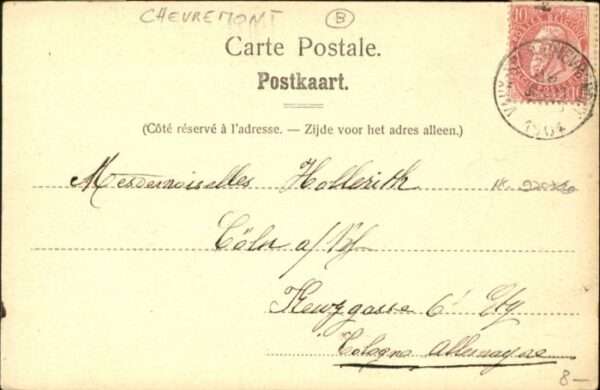 CHEVREMONT B
10 10
Carte Postale.
Postkaart.
1904
(Côté réservé à l'adresse. — Zijde voor het adres alleen.)
Mesdemoiselles Hollerith
Cöln a/Rh
6' Etg
Cologne Allemagne
8 —